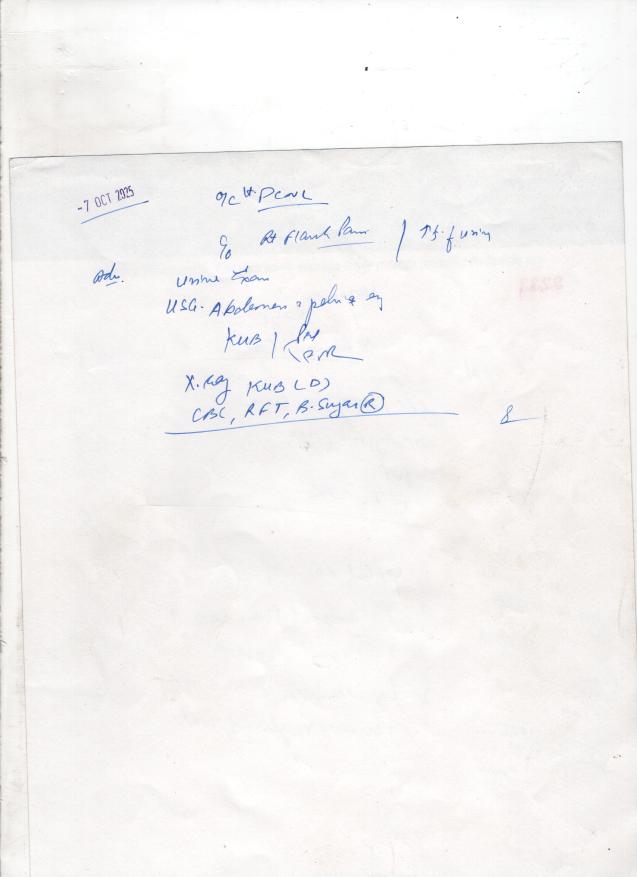 -7 OCT 2025
O/C Lt. PCNL
C/o Rt Flank Pain / ↑ f. of urine
Adv.
Urine Exam
USG. Abdomen & pelvis
KUB / PVR
X-Ray KUB (D)
CBC, RFT, B. Sugar (R)